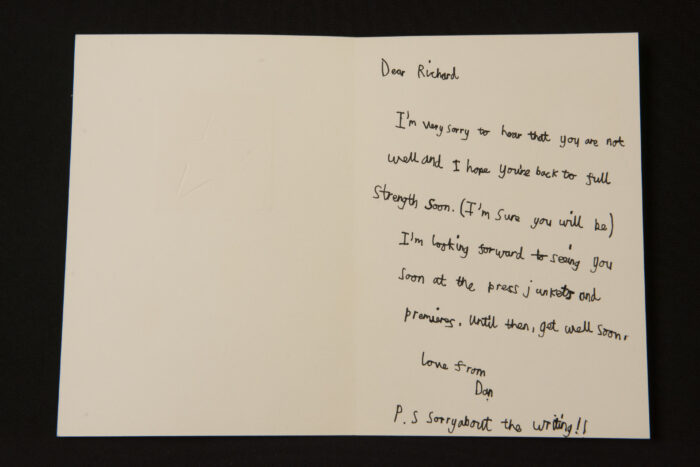 Dear Richard
I'm very sorry to hear that you are not
well and I hope you're back to full
Strength Soon. (I'm sure you will be)
I'm looking forward to seeing you
soon at the press junkets and
premieres. Until then, get well soon.
love from
Dan
P.S Sorry about the writing!!